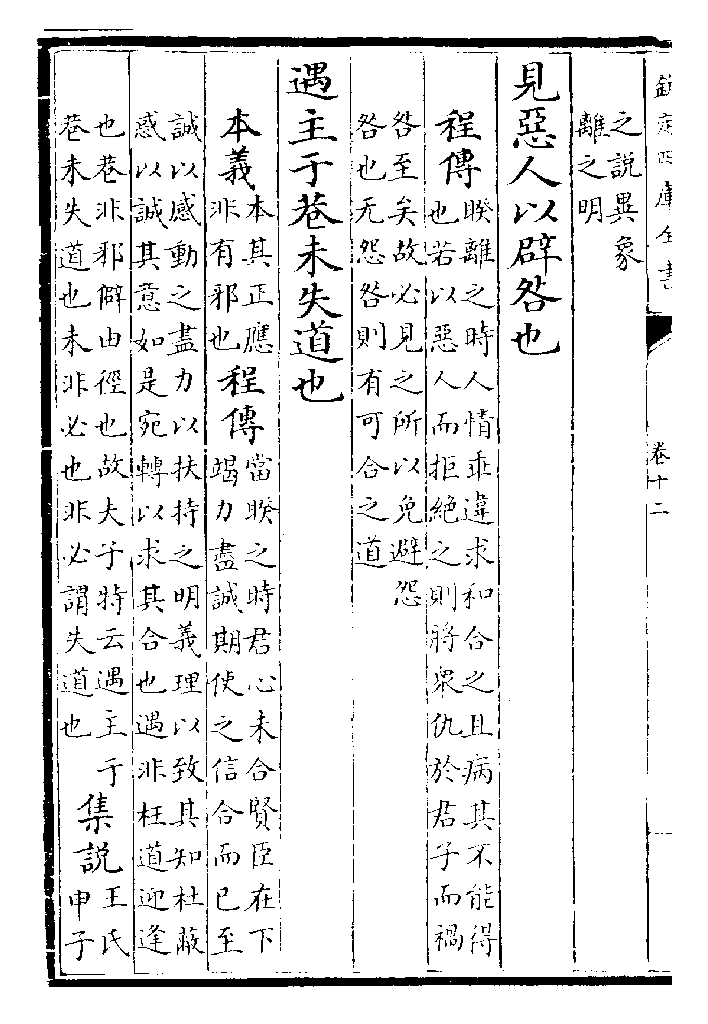 欽定四庫全書
卷十二
之說異象
離之明
見惡人以辟咎也
程傳
睽離之時人情乖違求和合之且病其不能得
也若以惡人而拒絶之則將衆仇於君子而禍
咎至矣故必見之所以免避怨
咎也无怨咎則有可合之道
遇主于巷未失道也
本義
本其正應
非有邪也
程傳
當睽之時君心未合賢臣在下
竭力盡誠期使之信合而已至
誠以感動之盡力以扶持之明義理以致其知杜蔽
惑以誠其意如是宛轉以求其合也遇非枉道迎逢
也巷非邪僻由徑也故夫子特云遇主于
巷未失道也未非必也非必謂失道也
集說
王氏
申子